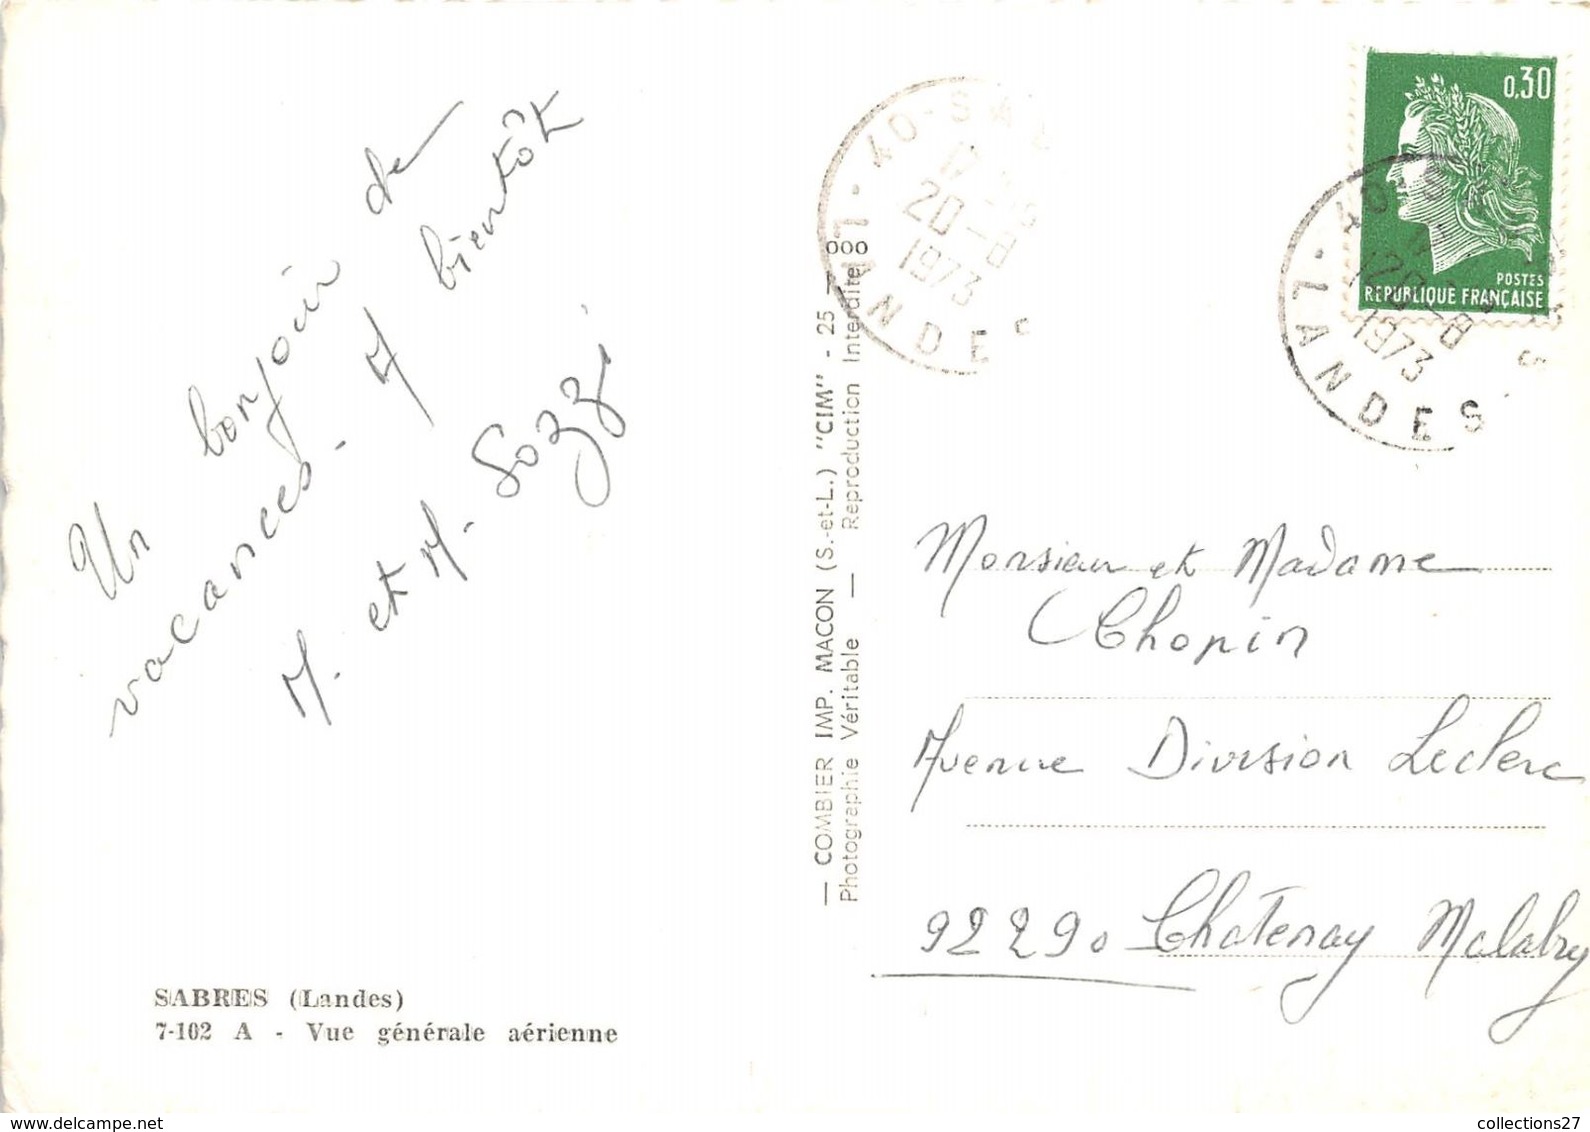 Un bonjour de
vacances. A bientôt
M. et M. Sozzi
SABRES (Landes)
7-102 A - Vue générale aérienne
— COMBIER IMP. MACON (S.-et-L.) "CIM" - 25 —
Photographie Véritable — Reproduction Interdite
000
40-SAB
LANDES
17
20-8
1973
0,30
POSTES
REPUBLIQUE FRANÇAISE
40-S
LANDES
20-8
1973
Monsieur et Madame
Chopin
Avenue Division Leclerc
92290 Chatenay Malabry
collections27